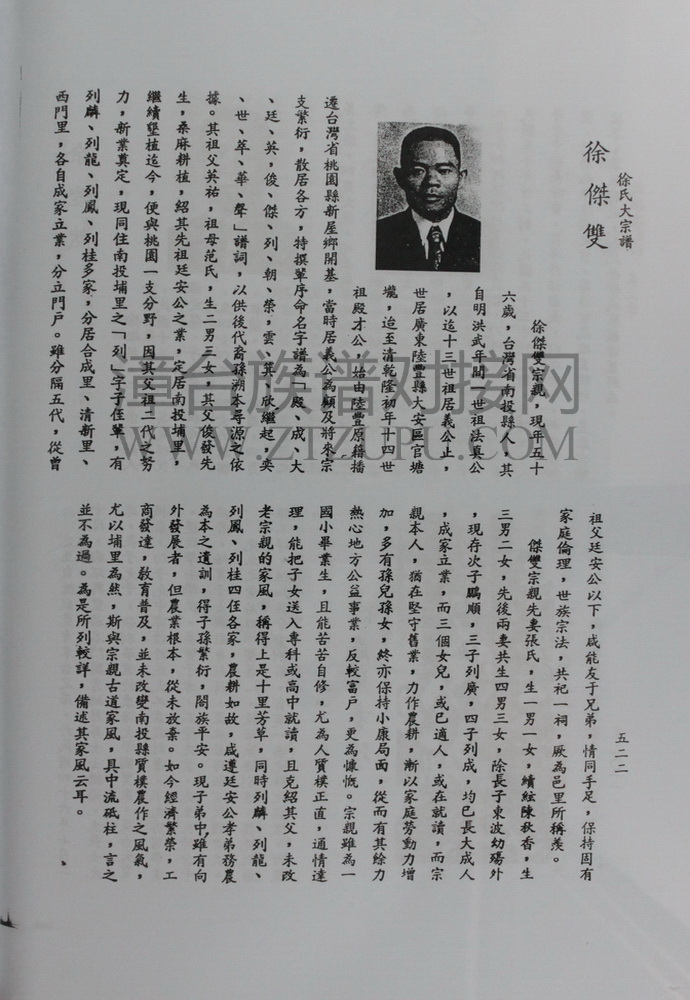 徐氏大宗譜
五二二
徐傑雙
徐傑雙宗親，現年五十
六歲，台灣省南投縣人，其
自明洪武年間一世祖法真公
，以迄十三世祖居義公止，
世居廣東陸豐縣大安區官塘
壠，迨至清乾隆初年十四世
祖殿才公，始由陸豐原籍播
遷台灣省桃園縣新屋鄉開基，當時居義公為顧及將來宗
支繁衍，散居各方，特撰輩序命名字譜為「殿、成、大
、廷、英，俊、傑、列、朝、榮，雲、其、欣繼起、奕
、世、萃、華、聲」譜詞，以供後代裔孫溯本尋源之依
據。其祖父英祐，祖母范氏，生二男三女，其父俊發先
生，桑麻耕植，紹其先祖廷安公之業，定居南投埔里，
繼續墾植迄今，便與桃園一支分野，因其父祖二代之努
力，新業奠定，現同住南投埔里之「列」字子侄輩，有
列麟、列龍、列鳳、列桂多家，分居合成里、清新里、
西門里，各自成家立業，分立門戶。雖分隔五代，從曾
祖父廷安公以下，咸能友于兄弟，情同手足，保持固有
家庭倫理，世族宗法，共祀一祠，厥為邑里所稱羨。
傑雙宗親先妻張氏，生一男一女，續絃陳秋香，生
三男二女，先後兩妻共生四男三女，除長子東波幼殤外
，現存次子鵬順，三子列廣，四子列成，均已長大成人
，成家立業，而三個女兒，或已適人，或在就讀，而宗
親本人，猶在堅守舊業，力作農耕，漸以家庭勞動力增
加，多有孫兒孫女，終亦保持小康局面，從而有其餘力
熱心地方公益事業，反較富戶，更為慷慨。宗親雖為一
國小畢業生，且能苦苦自修，尤為人質樸正直，通情達
理，能把子女送入專科或高中就讀，且克紹其父，未改
老宗親的家風，稱得上是十里芳草，同時列麟、列龍、
列鳳、列桂四侄各家，農耕如故，咸遵廷安公孝弟務農
為本之遺訓，得子孫繁衍，閤族平安。現子弟中雖有向
外發展者，但農業根本，從未放棄。如今經濟繁榮，工
商發達，教育普及，並未改變南投縣質樸農作之風氣，
尤以埔里為然，斯與宗親古道家風，具中流砥柱，言之
並不為過。為是所列較詳，備述其家風云耳。
童台族谱对接网
WWW.ZTZUPU.COM